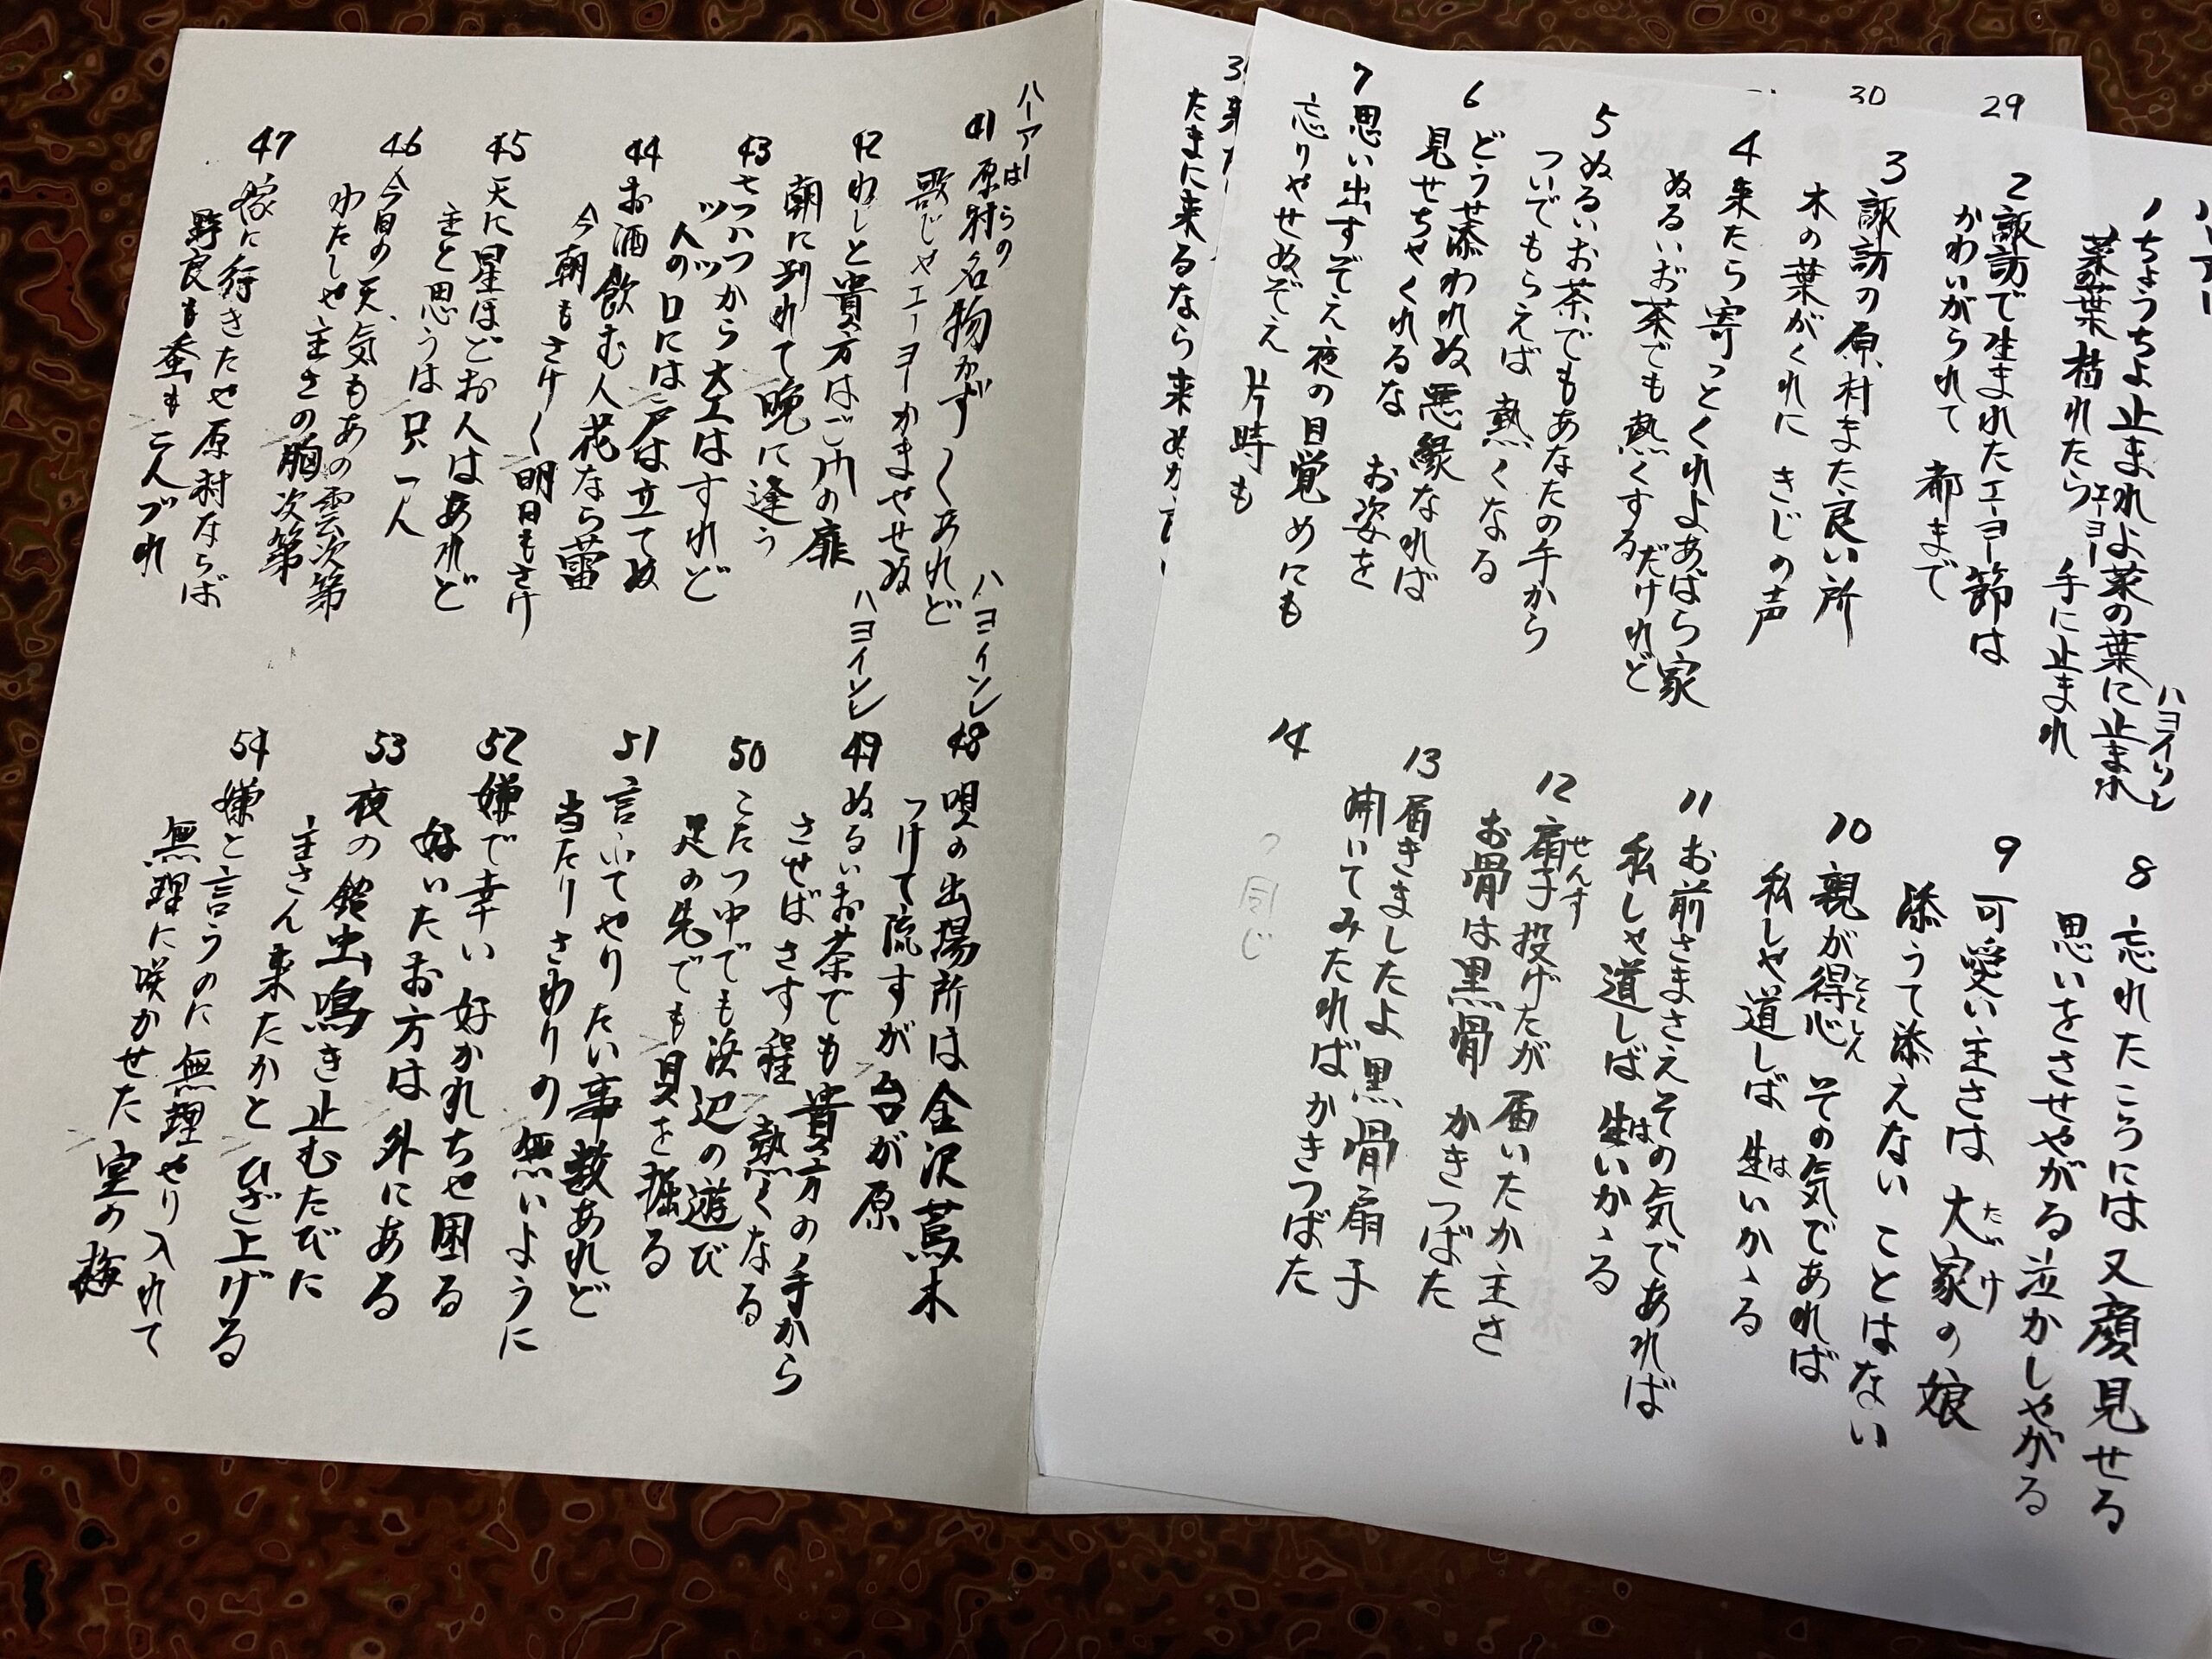 ハーアー
1 ちょうちょ止まれよ菜の葉に止まれ
ハヨイソレ
菜の葉枯れたら エーヨー 手に止まれ
2 諏訪で生まれたエーヨー節は
かわいがられて 都まで
3 諏訪の原村また良い所
木の葉がくれに きじの声
4 来たら寄っとくれよあばら家だけれど
ぬるいお茶でも熱くする
5 ぬるいお茶でもあなたの手から
ついでもらえば 熱くなる
6 どうせ添われぬ悪縁なれば
見せちゃくれるな お姿を
7 思い出すぞえ夜の目覚めにも
忘りやせぬぞえ 片時も
8 忘れたころには又顔見せる
思いをさせやがる泣かしゃがる
9 可愛い主さは 大家の娘
たいけ
添うて添えない ことはない
10 親が得心 その気であれば
とくしん
私しゃ道しば 生いかゝる
は
11 お前さまさえその気であれば
私しゃ道しば 生いかゝる
は
12 扇子投げたが 届いたか主さ
せんす
お骨は黒骨 かきつばた
13 届きましたよ黒骨扇子
開いてみたれば かきつばた
14
同じ
29
30
31
たまに来るなら来ぬが
ハーアー
41 原村名物かず〱あれど
はらの
ハヨイソレ
歌じゃエーヨーかまやせぬ
ハヨイソレ
42 わしと貴方はご門の扉
朝に別れて 晩に逢う
43 七つ八つから大工はすれど
ツツ
人の口には 戸は立てぬ
44 お酒飲む人花なら蕾
今朝もさけ〱 明日もさけ
45 天に星ほどお人はあれど
主と思うは 只一人
46 今日の天気もあの雲次第
わたしゃ主さの 胸次第
47 嫁に行きたや原村ならば
野良も蚕も 二人づれ
48 唄の出場所は金沢蔦木
つけて流すが 台が原
49 ぬるいお茶でも貴方の手から
させばさす程 熱くなる
50 こたつ中でも浜辺の遊び
足の先でも 貝を掘る
51 言ふてやりたい事数あれど
当たりさわりの 無いように
52 嫌で幸い 好かれちゃ困る
好いたお方は 外にある
53 夜の鈴虫鳴き止むたびに
主さん来たかと ひざ上げる
54 嫌と言うのに無理やり入れて
無理に咲かせた 室の梅